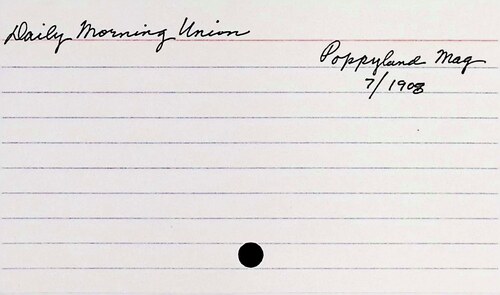 Daily Morning Union
Poppyland Mag
7/1908